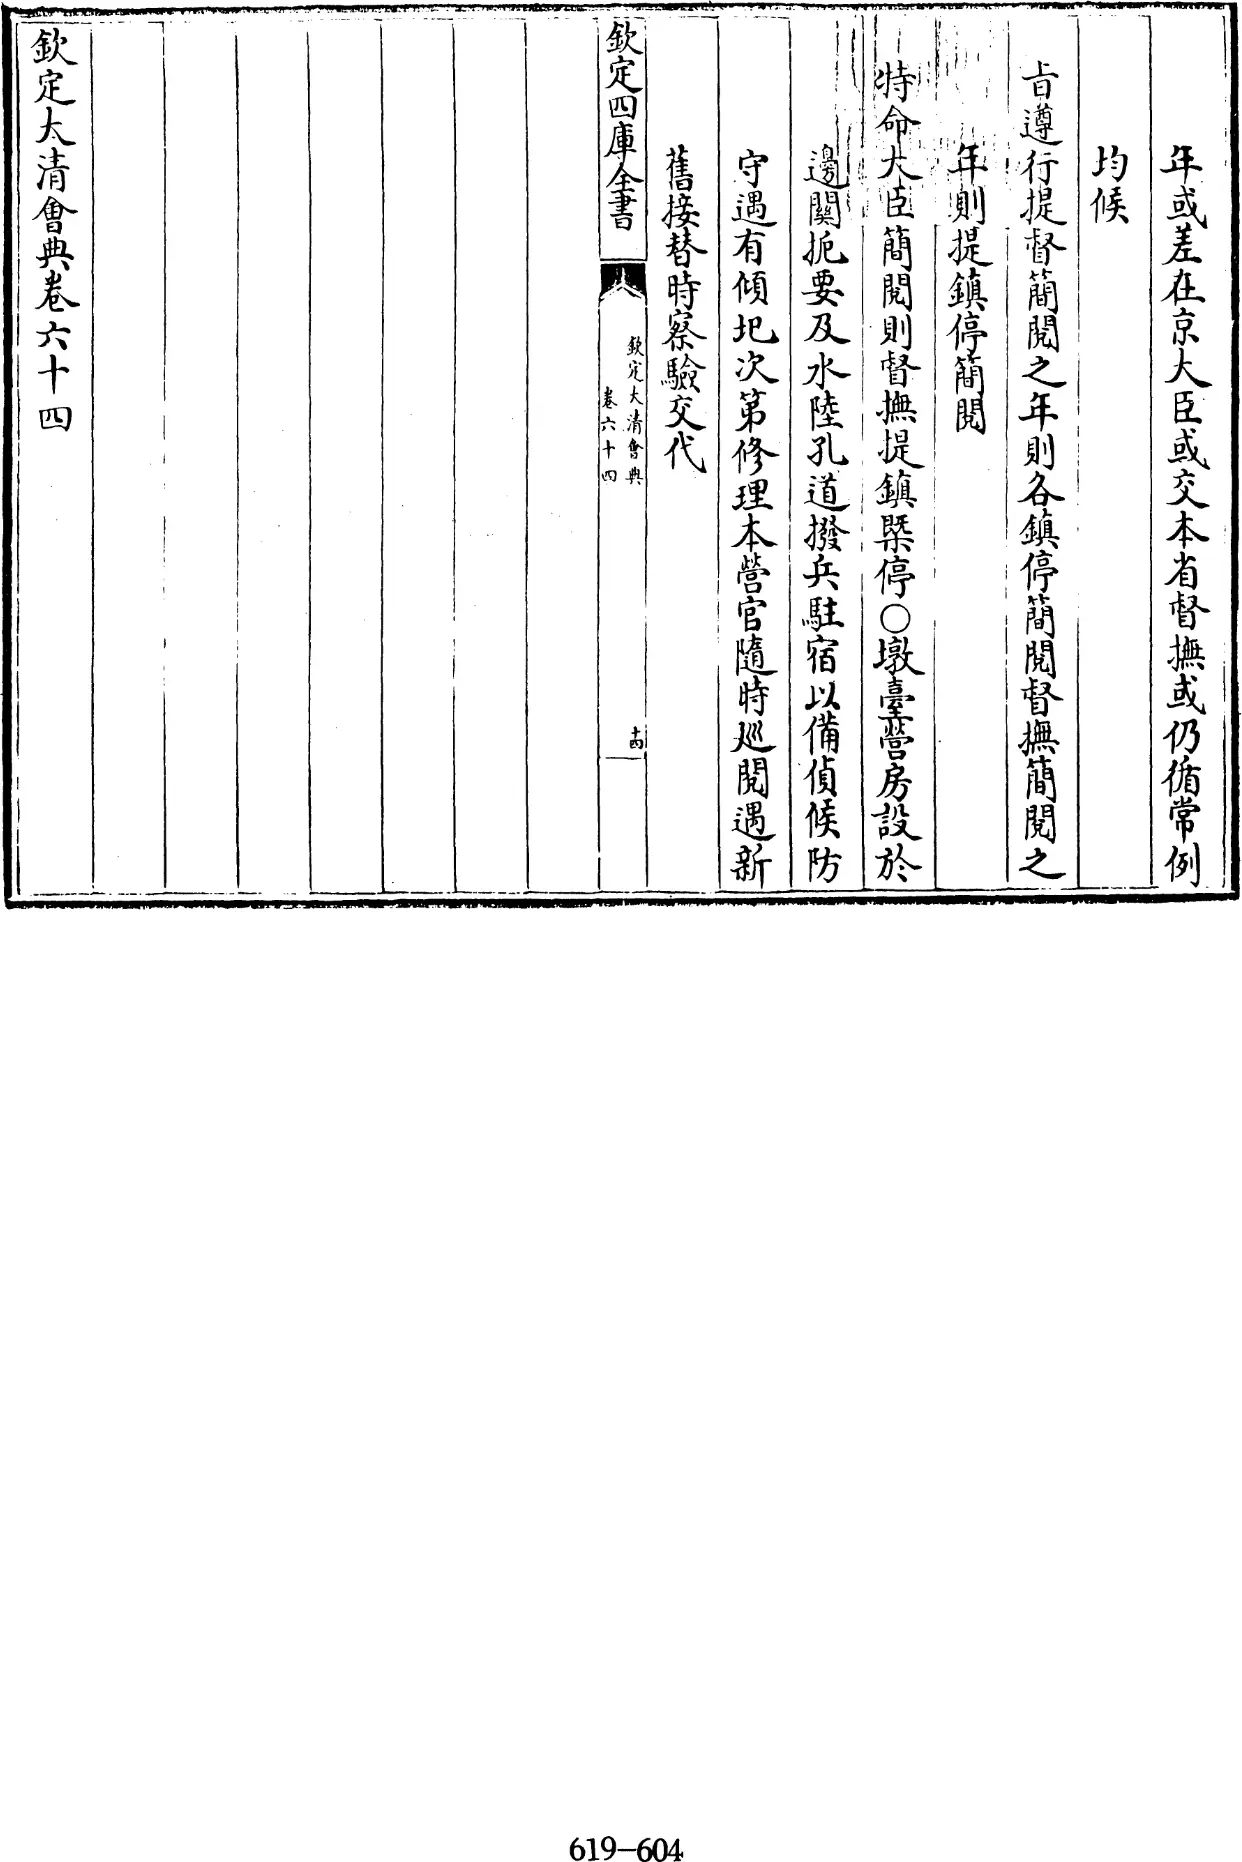 年或差在京大臣或交本省督撫或仍循常例
均候
旨遵行提督簡閱之年則各鎮停簡閱督撫簡閱之
年則提鎮停簡閱
特命大臣簡閱則督撫提鎮槩停○墩臺營房設於
邊關扼要及水陸孔道撥兵駐宿以備偵候防
守遇有傾圮次第修理本營官隨時巡閱遇新
舊接替時察驗交代
欽定四庫全書
欽定大清會典
卷六十四
十四
欽定大清會典卷六十四
619-604